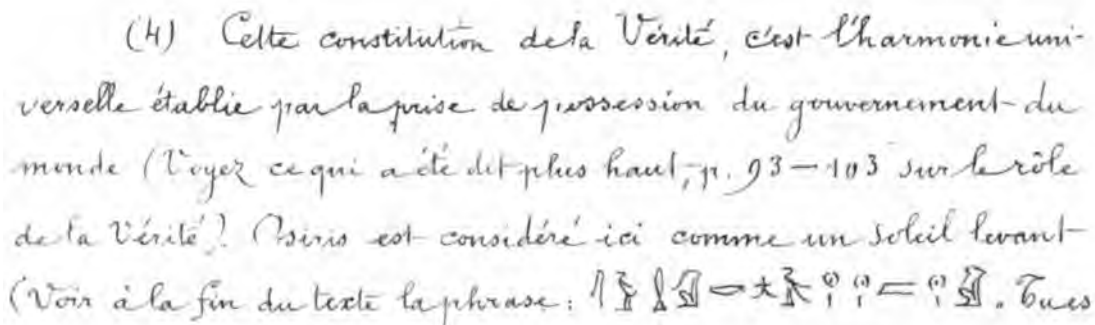 (4) Cette constitution de la Vérité, c'est l'harmonie uni-
verselle établie par la prise de possession du gouvernement du
monde (Voyez ce qui a été dit plus haut, p. 93 — 103 sur le rôle
de la Vérité). Osiris est considéré ici comme un soleil levant
(Voir à la fin du texte la phrase : . Tu es